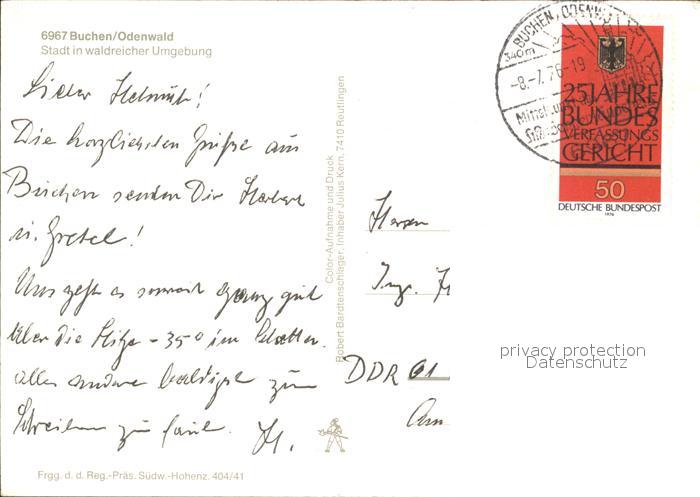 6967 Buchen/Odenwald
Stadt in waldreicher Umgebung
Lieber Helmut!
Die herzlichsten Grüße aus
Buchen senden Dir Herbert
u. Gretel!
Uns geht es soweit ganz gut
über die Hitze - 35° im Schatten.
alles andere baldigst zum
Schreiben zu faul. H.
Frgg. d. d. Reg.-Präs. Südw.-Hohenz. 404/41
Color-Aufnahme und Druck
Robert Bardtenschlager, Inhaber Julius Kern, 7410 Reutlingen
BUCHEN, ODENW
340m
-8.-7.76-19
25 JAHRE
BUNDES
VERFASSUNGS
GERICHT
50
DEUTSCHE BUNDESPOST
1976
Herrn
Ing.
DDR
Am
privacy protection
Datenschutz